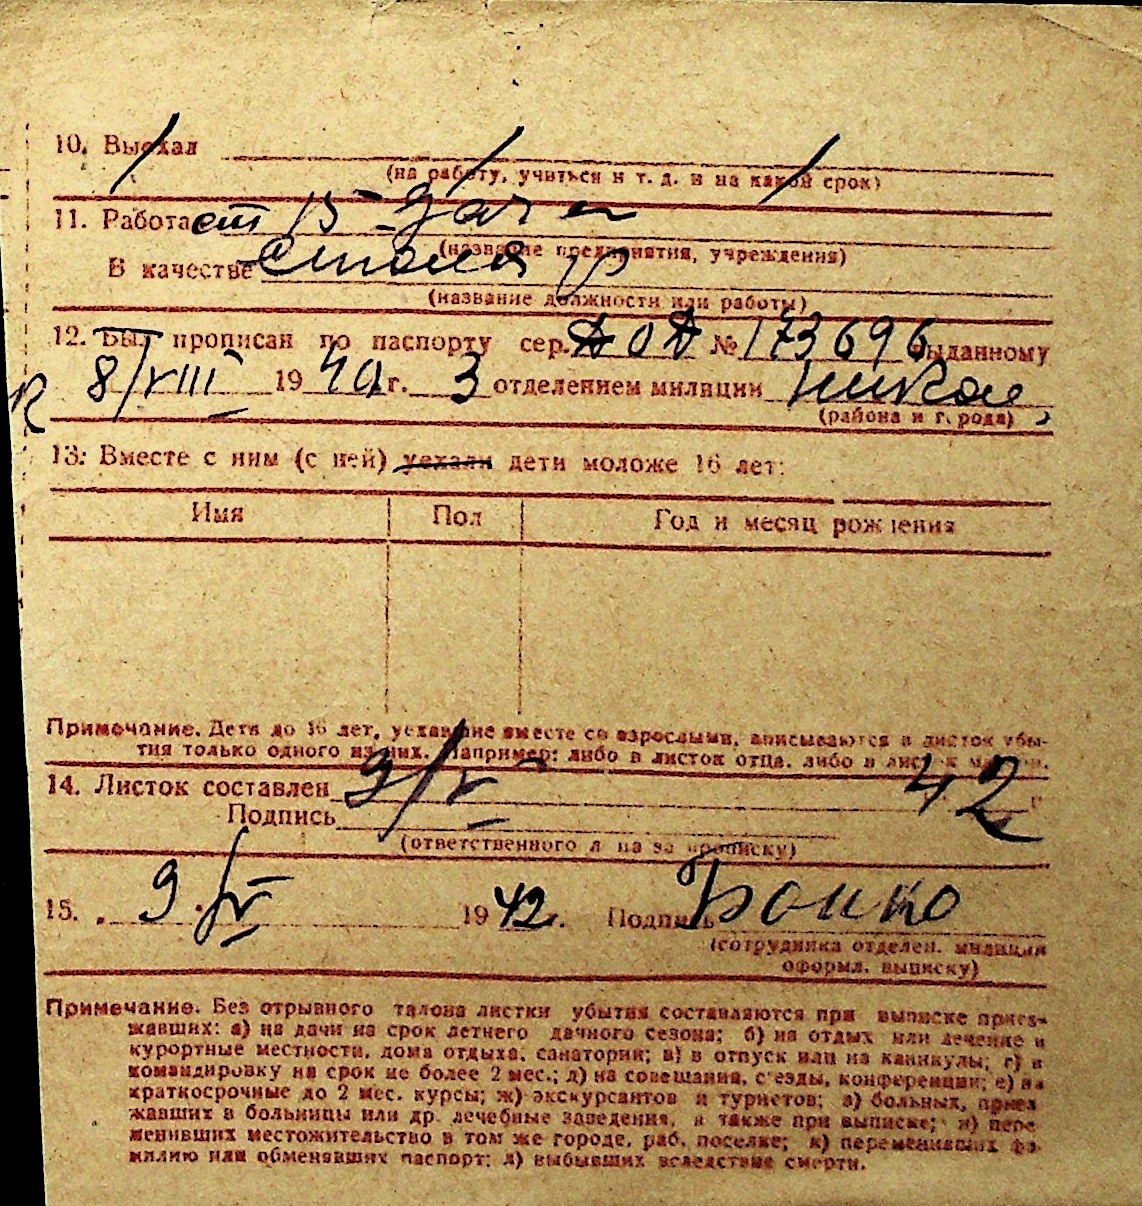 10. Выехал
(на работу, учиться и т. д. и на какой срок)
11. Работает 15 - Дачи
(название предприятия, учреждения)
В качестве столяр
(название должности или работы)
12. Был прописан по паспорту сер. № 173696 выданному
8/VIII 19 40 г. 3 отделением милиции
(района и города)
13. Вместе с ним (с ней) уехали дети моложе 16 лет:
Имя Пол Год и месяц рождения
Примечание. Дети до 16 лет, уехавшие вместе со взрослыми, вписываются в листок убы-
тия только одного из них. Например: либо в листок отца, либо в листок матери.
14. Листок составлен 9/V 42 г.
Подпись
(ответственного лица за прописку)
15. 9/V 1942 г. Подпись Бойко
(сотрудника отделен. милиции
оформл. выписку)
Примечание. Без отрывного талона листки убытия составляются при выписке приез-
жавших: а) на дачи на срок летнего дачного сезона; б) на отдых или лечение в
курортные местности, дома отдыха, санатории; в) в отпуск или на каникулы; г) в
командировку на срок не более 2 мес.; д) на совещания, с'езды, конференции; е) на
краткосрочные до 2 мес. курсы; ж) экскурсантов и туристов; з) больных, приез
жавших в больницы или др. лечебные заведения, а также при выписке; и) пере
менивших местожительство в том же городе, раб. поселке; к) переменивших фа-
милию или обменявших паспорт; л) выбывших вследствие смерти.